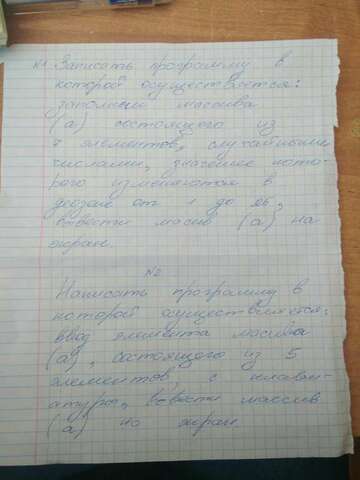 №1 Записать программу в
которой осуществляется:
заполнение массива
(а) состоящего из
7 элементов, случайными
числами, значение кото-
рого изменяются в
от 1 до 26,
вывести масив (а) на
экран.
№2
Написать программу в
которой осуществляется:
ввод элемента масива
(а), состоящего из 5
элементов, с клавви-
атуры, вывести массив
(а) на экран